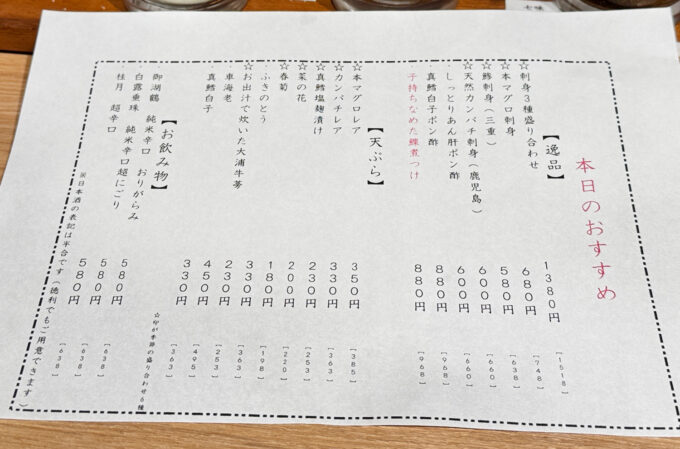 本日のおすすめ
【逸品】
☆刺身3種盛り合わせ 1380円 [1518]
☆本マグロ刺身 680円 [748]
☆鯵刺身(三重) 580円 [638]
☆天然カンパチ刺身(鹿児島) 600円 [660]
・しっとりあん肝ポン酢 600円 [660]
・真鱈白子ポン酢 880円 [968]
・子持ちなめた鰈煮つけ 880円 [968]
【天ぷら】
☆本マグロレア 350円 [385]
☆カンパチレア 330円 [363]
☆真鱈塩麹漬け 230円 [253]
☆菜の花 200円 [220]
☆春菊 180円 [198]
・ふきのとう 330円 [363]
☆お出汁で炊いた大浦牛蒡 230円 [253]
・車海老 450円 [495]
・真鱈白子 330円 [363]
☆印が季節の盛り合わせ6種
【お飲み物】
・御湖鶴 純米辛口 おりがらみ 580円 [638]
・白露垂珠 純米辛口超にごり 580円 [638]
・桂月 超辛口 580円 [638]
※日本酒の表記は半合です(徳利でもご用意できます)